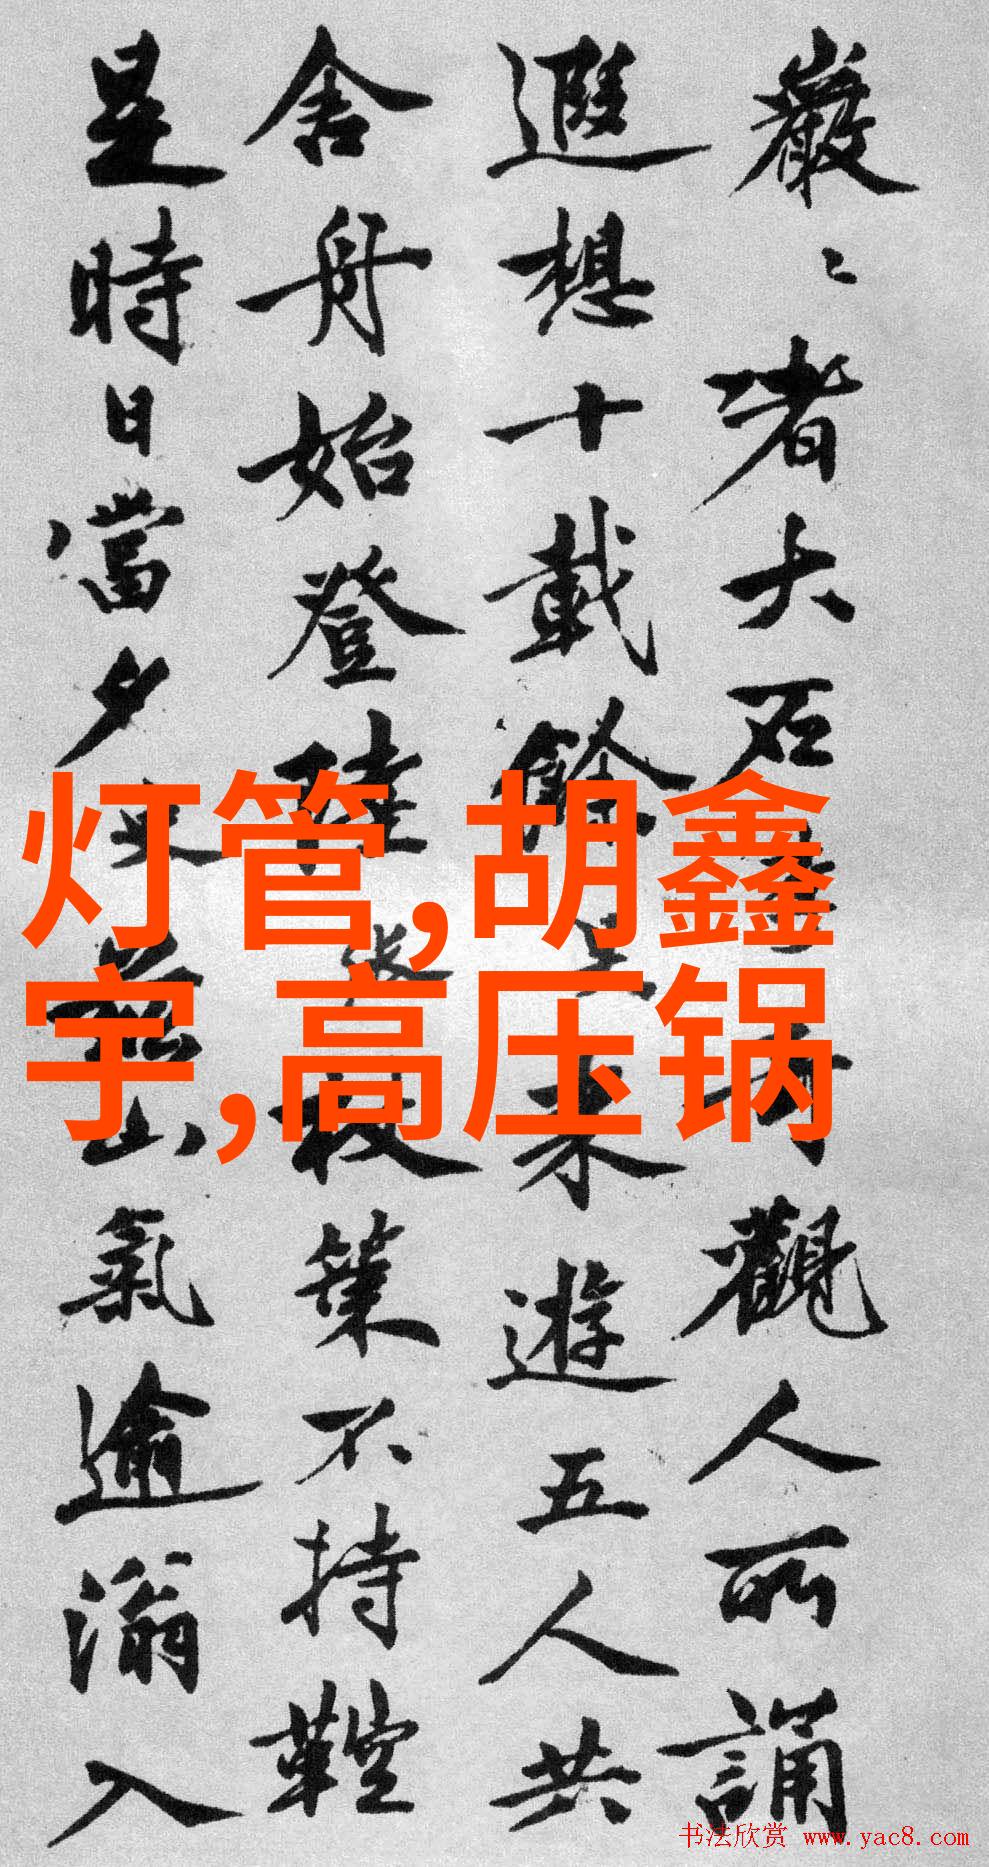 巖〻者大石觀人所誦
遐想十載餘來遊五人共
舍舟始登陸策不持鞚
是時日當夕山氣逾滃入
灯管,胡鑫
宇,高压锅
书法欣赏 www.yac8.com